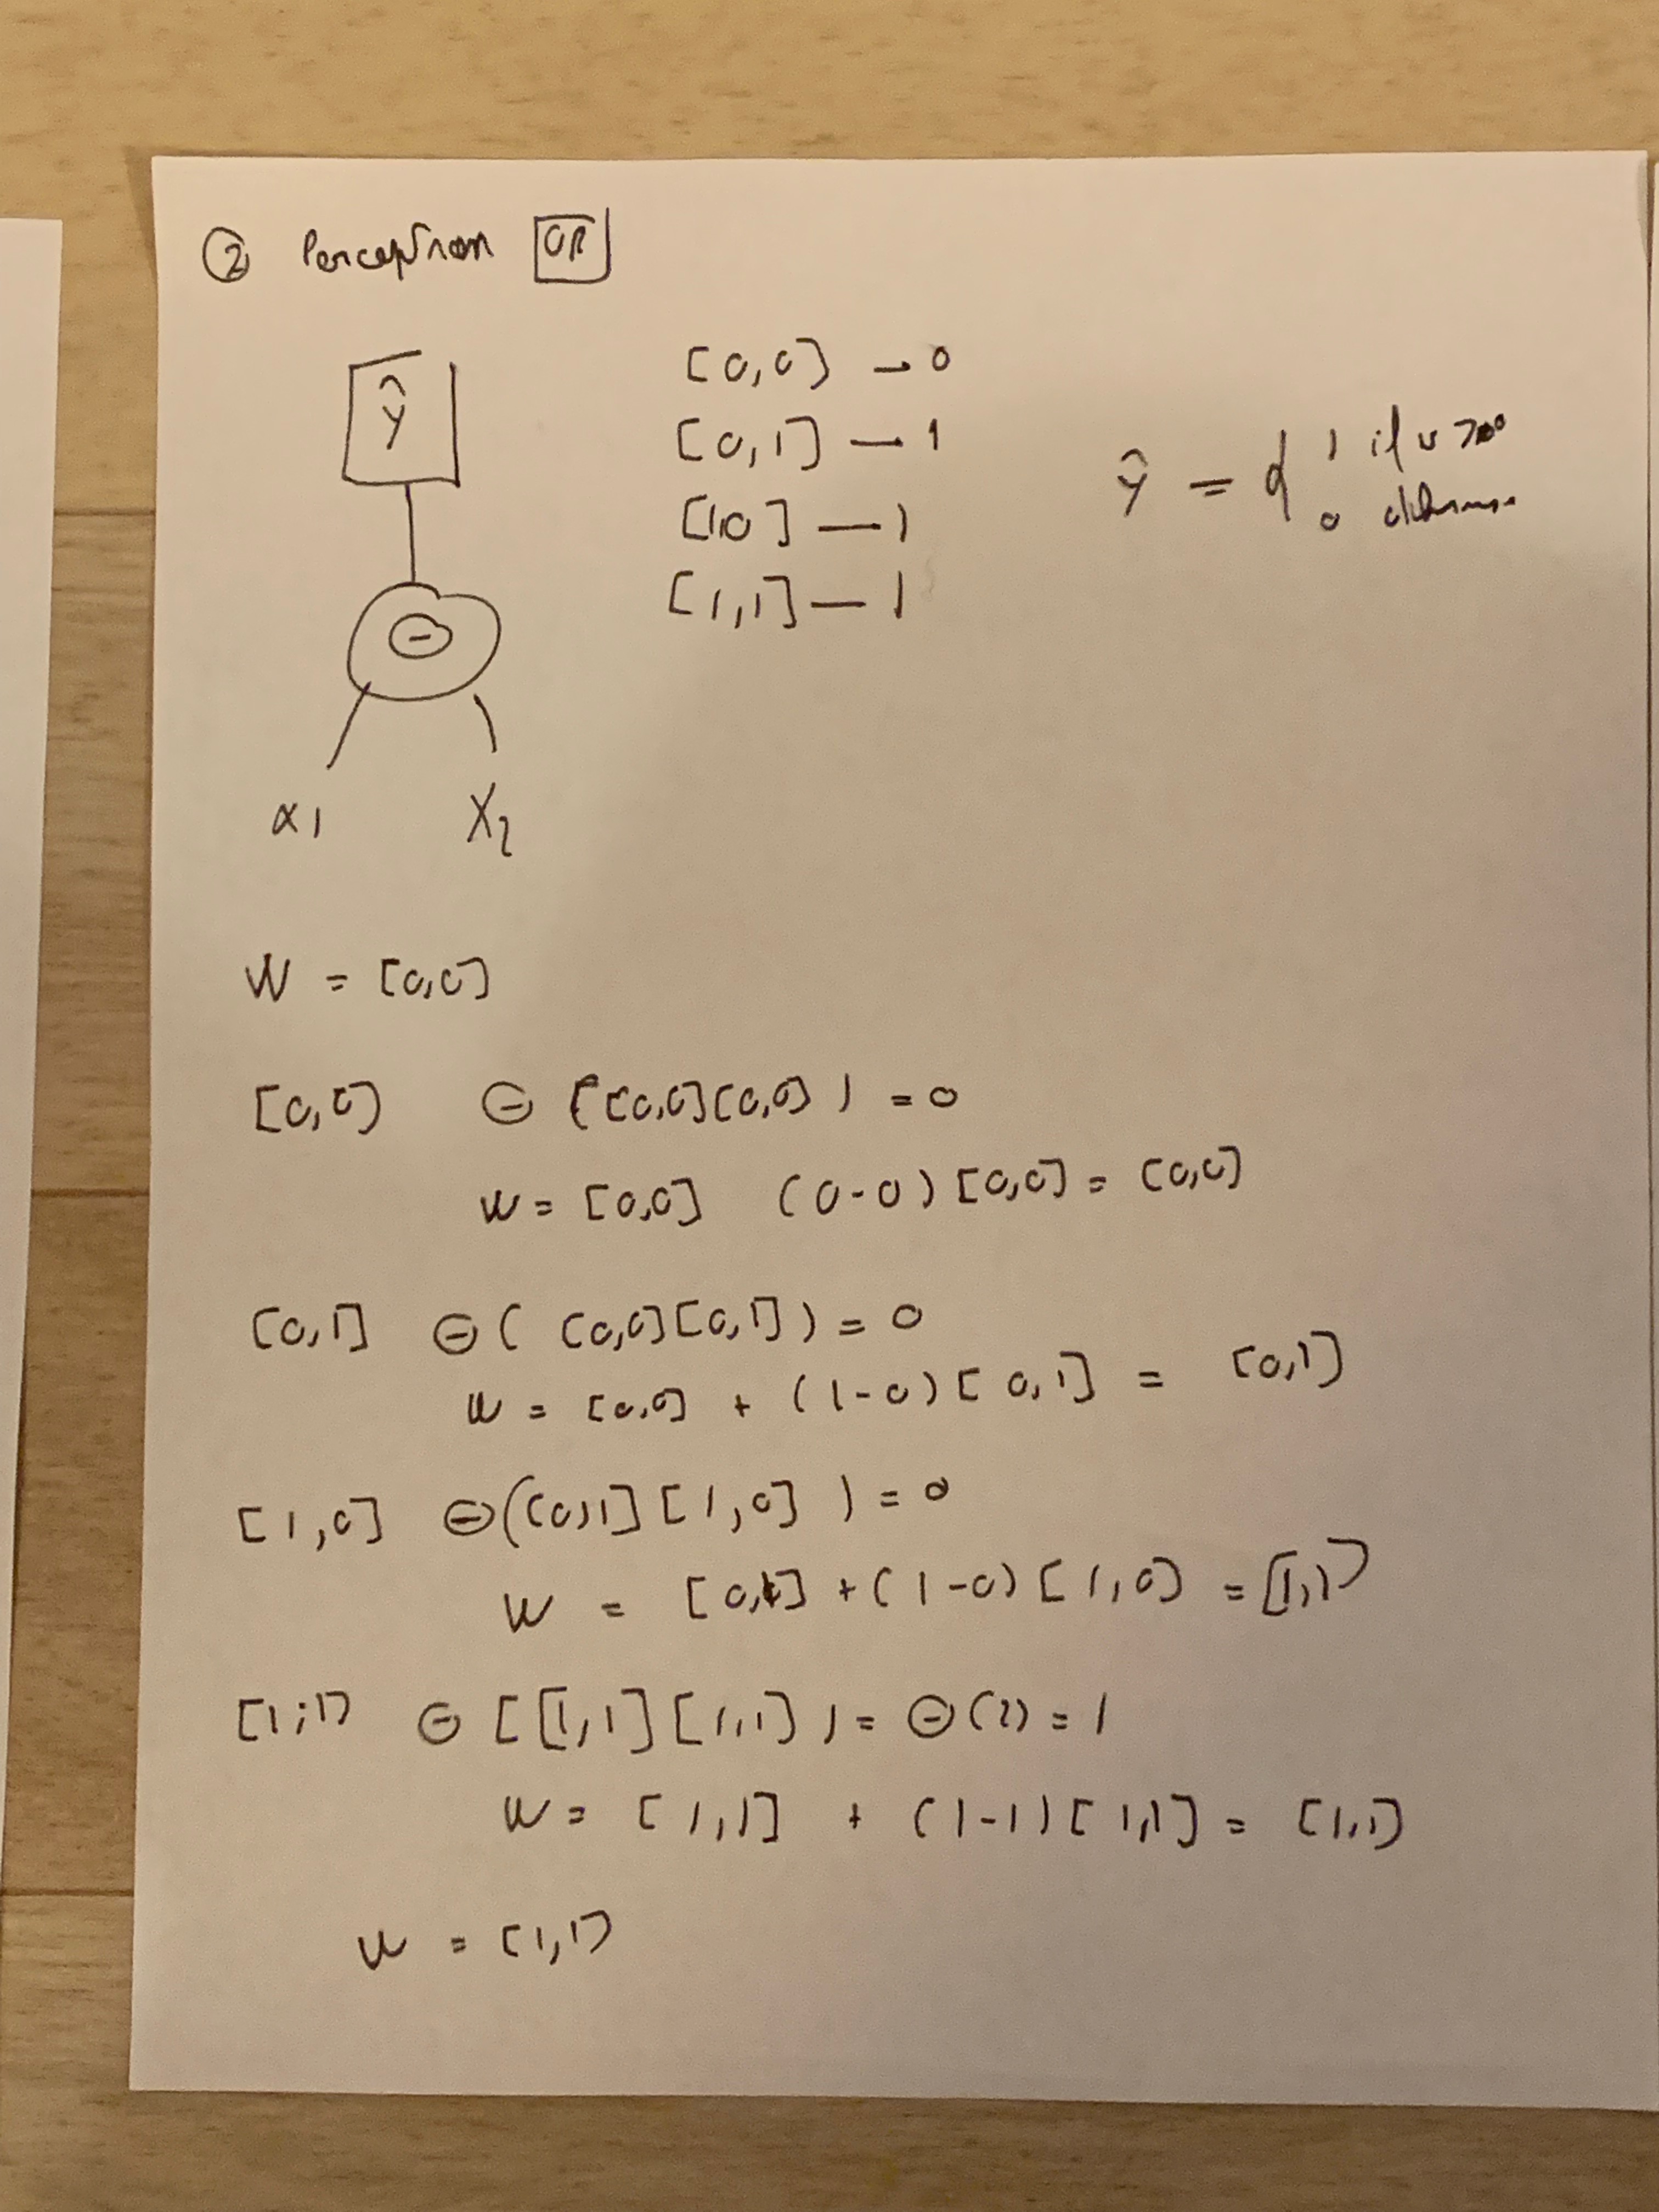 ② Perceptron OR
ŷ
[0,0] - 0
[0,1] - 1
[1,0] - 1
[1,1] - 1
ŷ = { 1 if v > 0
0 otherwise
Θ
x1 x2
W = [0,0]
[0,0] Θ ([0,0][0,0]) = 0
W = [0,0] (0-0)[0,0] = [0,0]
[0,1] Θ ([0,0][0,1]) = 0
W = [0,0] + (1-0)[0,1] = [0,1]
[1,0] Θ([0,1][1,0]) = 0
W = [0,1] + (1-0)[1,0] = [1,1]
[1,1] Θ [[1,1][1,1]) = Θ(2) = 1
W = [1,1] + (1-1)[1,1] = [1,1]
W = [1,1]